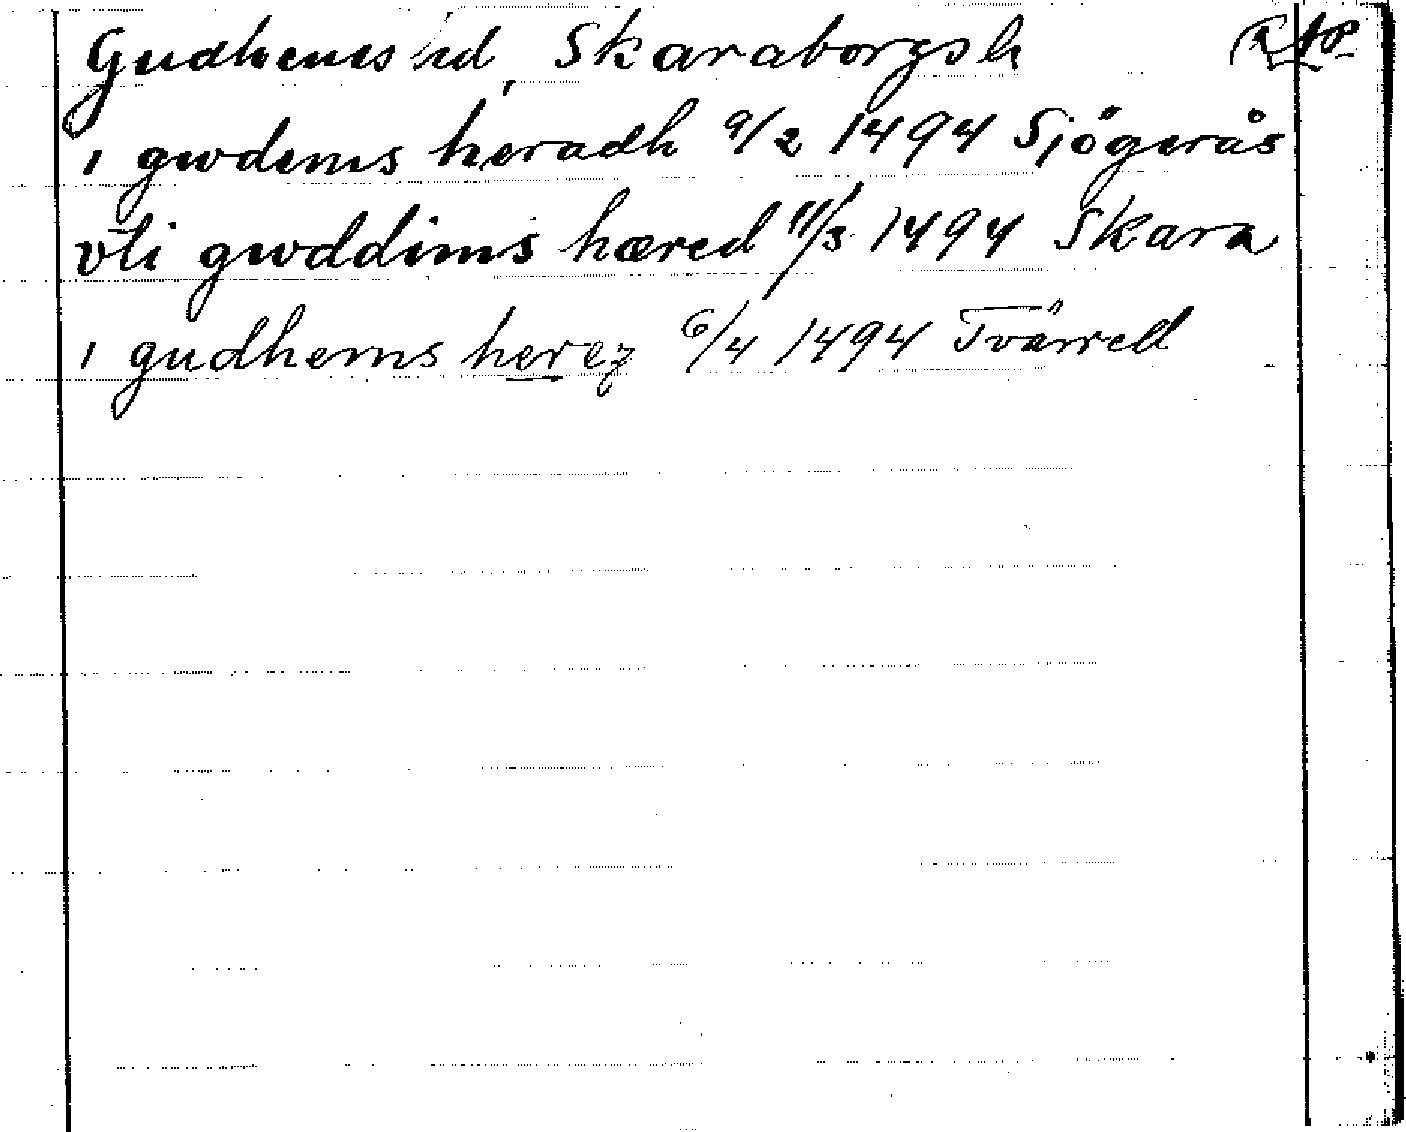 Gudhems hd, Skaraborgsl RAP
i gwdems heradh 9/2 1494 Sjögerås
vti gwddims hæred 11/3 1494 Skara
i gudhems herez 6/4 1494 Tvärred